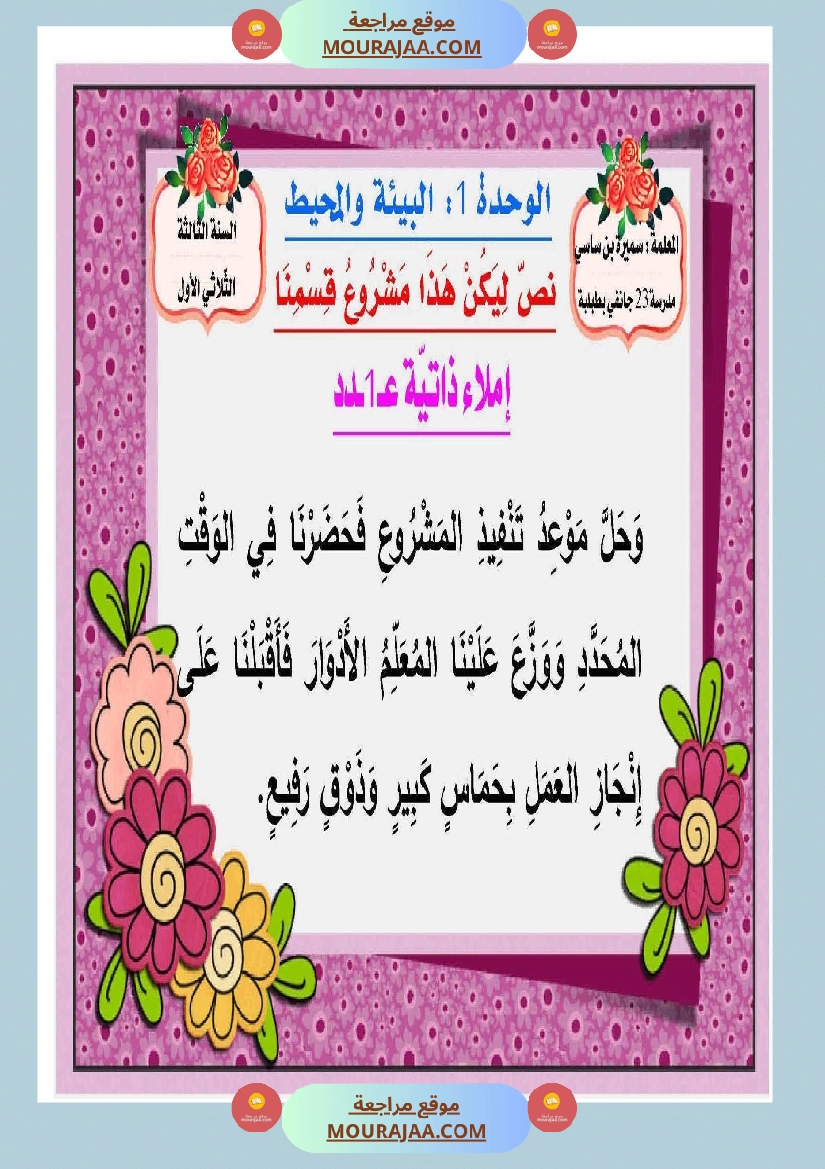 موقع مراجعة
MOURAJAA.COM
الوحدة 1: البيئة والمحيط
المعلمة : سميرة بن ساسي
مدرسة 23 جانفي بطبلبة
السنة الثالثة
الثّلاثي الأول
نصّ لِيَكُنْ هَذَا مَشْرُوعُ قِسْمِنَا
إملاء ذاتيّة عـ1ـدد
وَحَلَّ مَوْعِدُ تَنْفِيذِ المَشْرُوعِ فَحَضَرْنَا فِي الوَقْتِ
المُحَدَّدِ وَوَزَّعَ عَلَيْنَا المُعَلِّمُ الأَدْوَارَ فَأَقْبَلْنَا عَلَى
إِنْجَازِ العَمَلِ بِحَمَاسٍ كَبِيرٍ وَذَوْقٍ رَفِيعٍ.
موقع مراجعة
MOURAJAA.COM